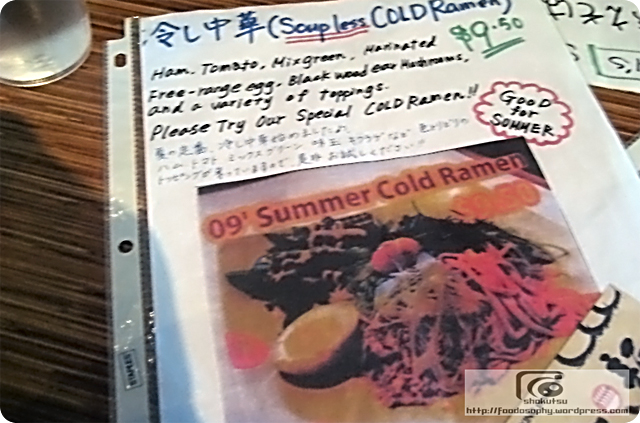 冷し中華(Soupless COLD Ramen)
$9.50
Ham, Tomato, Mixgreen, Marinated
Free-range egg, Black wood ear Mushrooms,
and a variety of toppings.
Please Try Our Special COLD Ramen!!
GOOD
for
SUMMER
夏の定番、冷し中華始めました。
ハム トマト ミックスグリーン 味玉
09' Summer Cold Ramen
shokutsu
http://foodosophy.wordpress.com